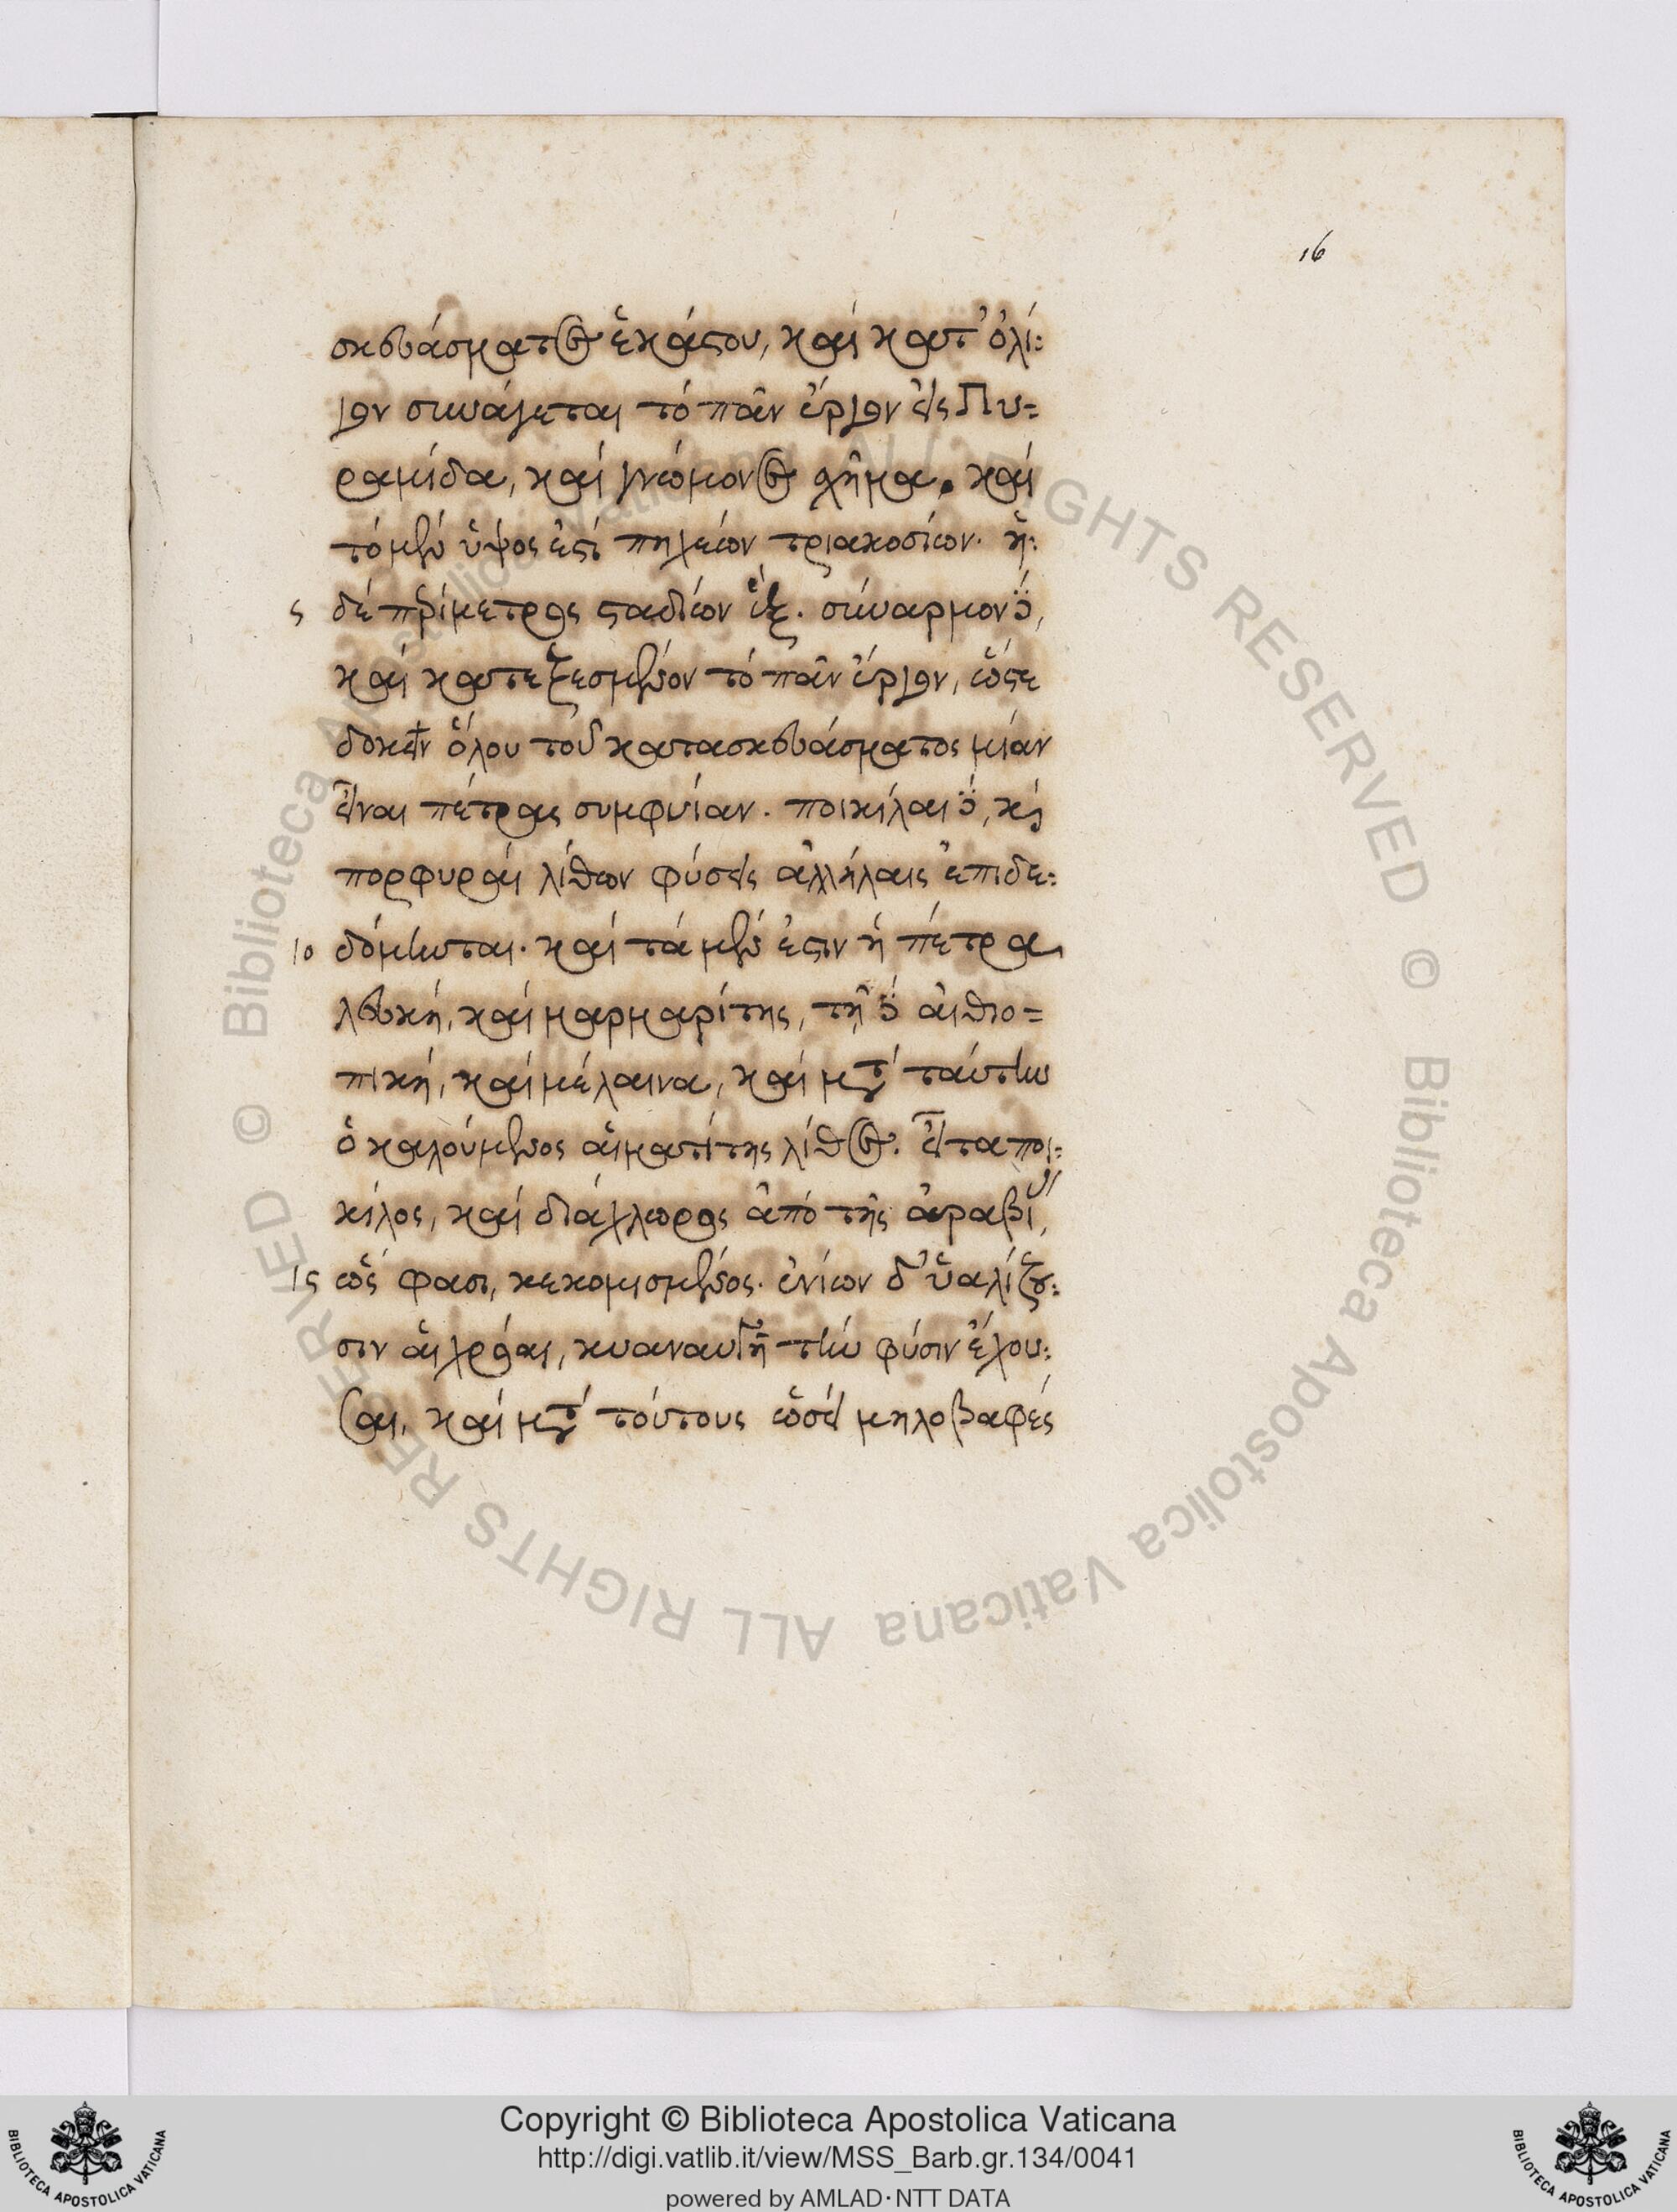 16
σκευάσματος ἑκάστου, καὶ κατ' ὀλί:
γον συνάγεται τὸ πᾶν ἔργον εἰς Πυ=
ραμίδα, καὶ γνώμονος χῆμα. καὶ
τὸ μὲν ὕψος ἐστὶ πηχεών τριακοσίων. ἡ:
5 δὲ περίμετρος σταδίων ἕξ. σύναρμον δὲ,
καὶ κατεξεσμένον τὸ πᾶν ἔργον, ὥστε
δοκεῖν ὅλου τοῦ κατασκευάσματος μίαν
εἶναι πέτρας συμφυΐαν. ποικίλαι δὲ, καὶ
πορφυραῖ λίθων φύσεις ἀλλήλαις ἐπιδε:
10 δόμηνται. καὶ τὰ μὲν ἐστιν ἡ πέτρα
λευκὴ, καὶ μαρμαρίτης, τῇ δὲ αἰθιο=
πικὴ, καὶ μέλαινα, καὶ μετὰ ταύτην
ὁ καλούμενος αἱματίτης λίθος. εἶτα ποι:
κίλος, καὶ διάχλωρος ἀπὸ τῆς ἀραβί,
15 ὥς φασι, κεκομισμένος. ἐνίων δ' ὑαλίζου:
σιν αἱ χρόαι, κυαναυγῆ τὴν φύσιν ἔχου:
σαι, καὶ μετὰ τούτους ὡσεὶ μηλοβαφές
© Biblioteca Apostolica Vaticana ALL RIGHTS RESERVED © Biblioteca Apostolica Vaticana ALL RIGHTS RESERVED
Copyright © Biblioteca Apostolica Vaticana
http://digi.vatlib.it/view/MSS_Barb.gr.134/0041
powered by AMLAD·NTT DATA
BIBLIOTECA APOSTOLICA VATICANA
BIBLIOTECA APOSTOLICA VATICANA